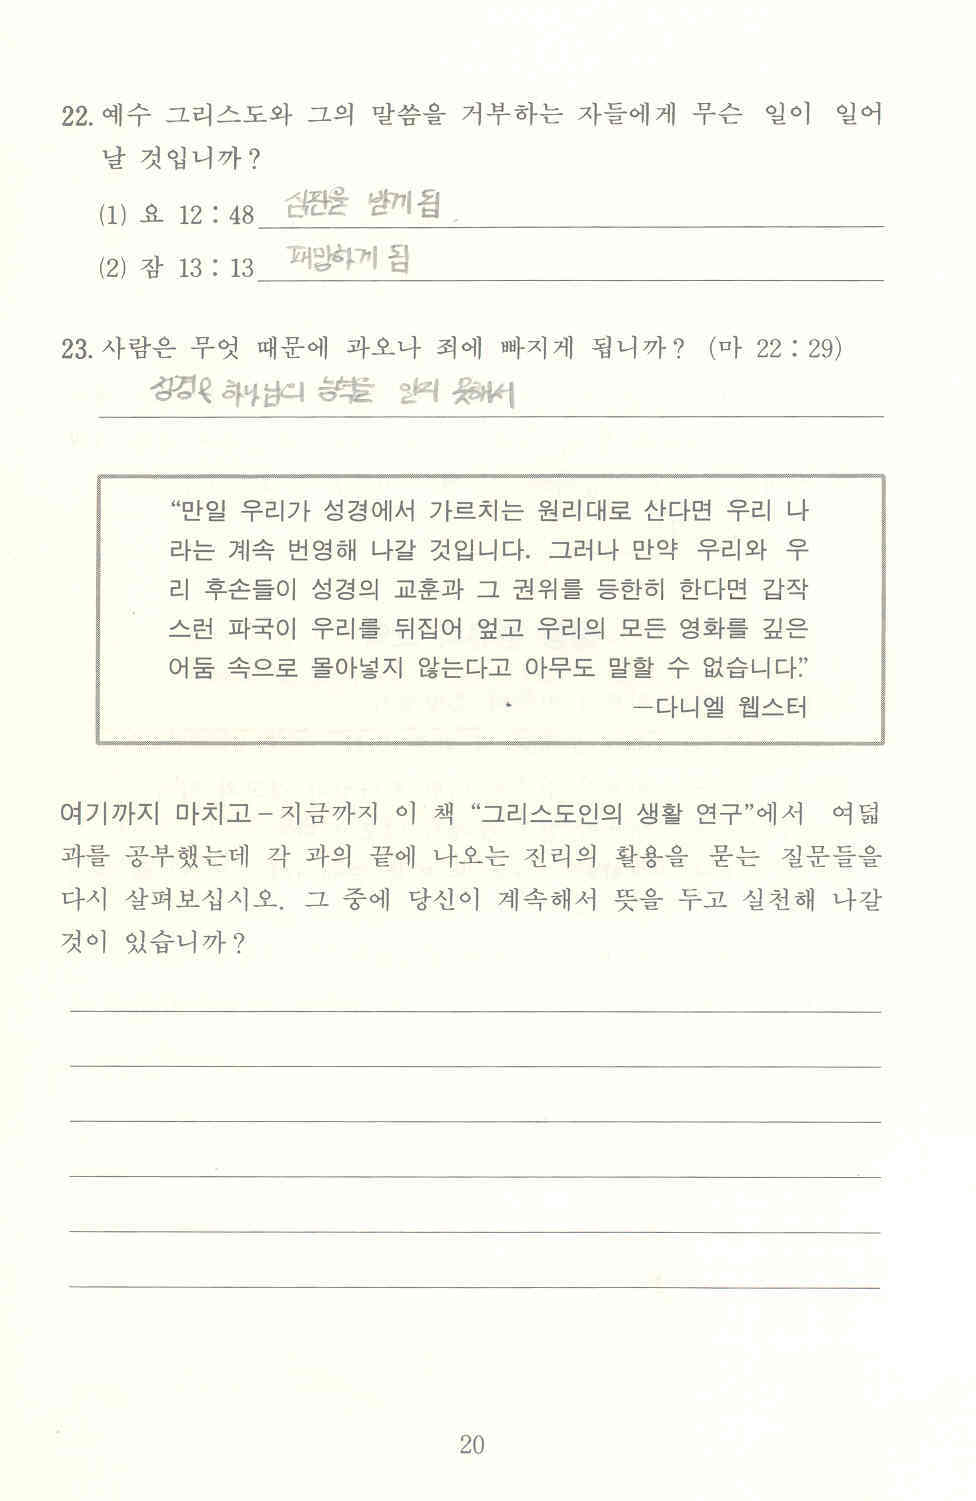 22. 예수 그리스도와 그의 말씀을 거부하는 자들에게 무슨 일이 일어
날 것입니까?
(1) 요 12 : 48 심판을 받게 됨
(2) 잠 13 : 13 패망하게 됨
23. 사람은 무엇 때문에 과오나 죄에 빠지게 됩니까? (마 22 : 29)
성경& 하나님의 능력을 알지 못해서
“만일 우리가 성경에서 가르치는 원리대로 산다면 우리 나
라는 계속 번영해 나갈 것입니다. 그러나 만약 우리와 우
리 후손들이 성경의 교훈과 그 권위를 등한히 한다면 갑작
스런 파국이 우리를 뒤집어 엎고 우리의 모든 영화를 깊은
어둠 속으로 몰아넣지 않는다고 아무도 말할 수 없습니다.”
—다니엘 웹스터
여기까지 마치고 – 지금까지 이 책 “그리스도인의 생활 연구”에서 여덟
과를 공부했는데 각 과의 끝에 나오는 진리의 활용을 묻는 질문들을
다시 살펴보십시오. 그 중에 당신이 계속해서 뜻을 두고 실천해 나갈
것이 있습니까?
20